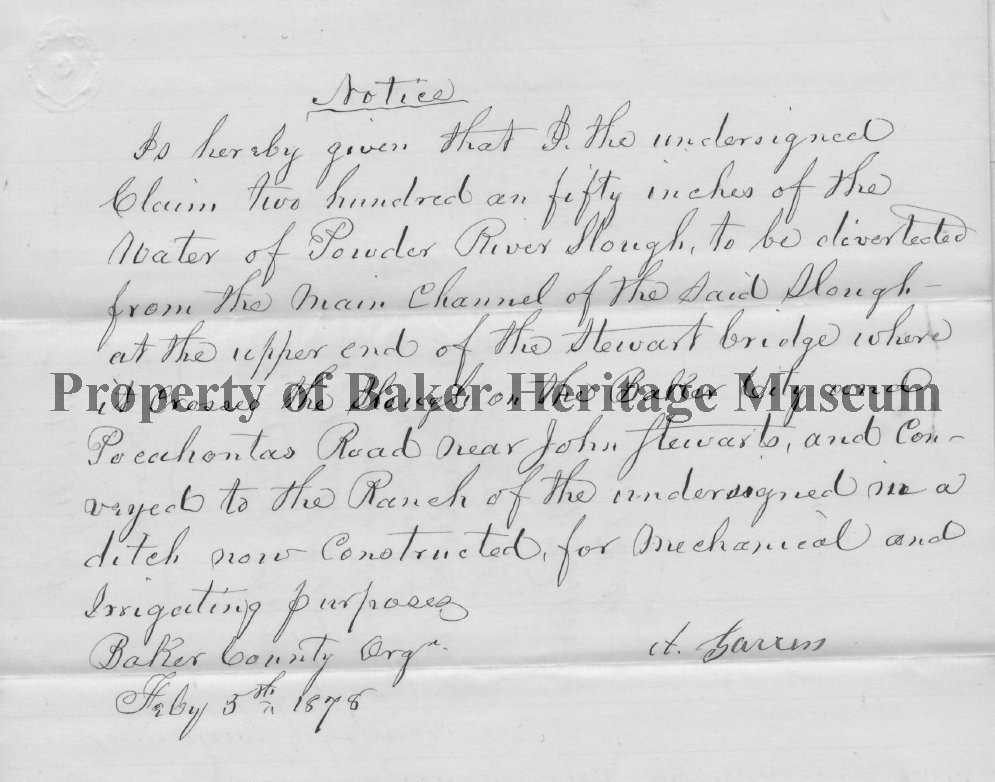 Notice
Is hereby given that I. the undersigned
Claim two hundred an fifty inches of the
Water of Powder River Slough, to be divertected
from the Main Channel of the said Slough-
at the upper end of the Stewart bridge where
it crosses the Slough on the Baker City and
Property of Baker Heritage Museum
Pocahontas Road near John Stewarts, and Con-
veyed to the Ranch of the undersigned in a
ditch now Constructed, for Mechanical and
Irrigating purposes
Baker County Orgn.
A.
Feby 5th 1878